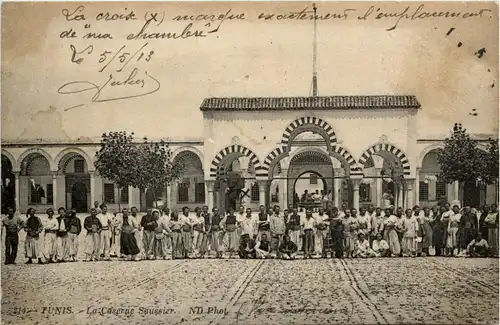 La croix (x) marque exactement l'emplacement
de "ma chambre.
Le 5/5/13
214 - TUNIS. - La Caserne Saussier. ND Phot.